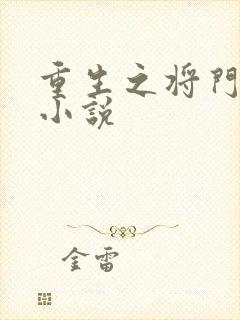 重生之将門
小説
金雷